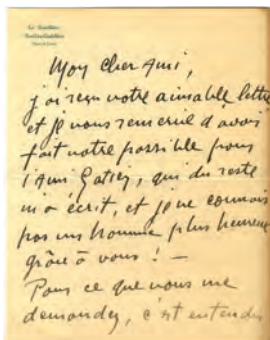 Mon cher Ami,
j'ai reçu votre aimable lettre
et je vous remercie d'avoir
fait votre possible pour
l'Ami qui du reste
m'a écrit, et je ne connais
pas un homme plus heureux
grâce à vous ! —
Pour ce que vous me
demandez, c'est entendu